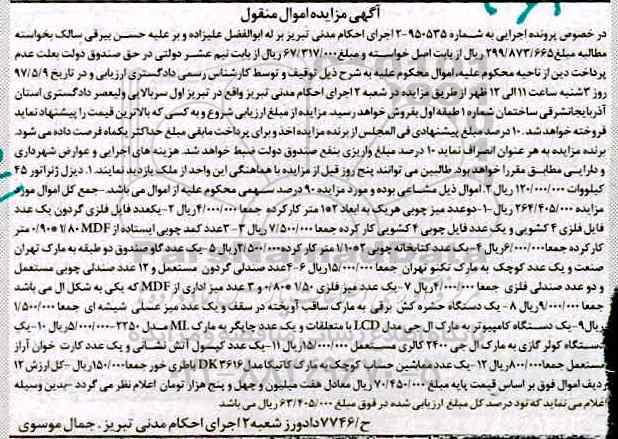 آگهی مزایده اموال منقول
در خصوص پرونده اجرایی به شماره ۹۵۰۵۳۵-۲ اجرای احکام مدنی تبریز بر له ابوالفضل علیزاده و بر علیه حسن بیرقی سالک بخواسته
مطالبه مبلغ ۲۹۹/۸۷۳/۶۶۵ ریال از بابت اصل خواسته و مبلغ ۶۷/۳۱۷/۰۰۰ ریال از بابت نیم عشر دولتی در حق صندوق دولت بعلت عدم
پرداخت دین از ناحیه محکوم علیه، اموال محکوم علیه به شرح ذیل توقیف و توسط کارشناس رسمی دادگستری ارزیابی و در تاریخ ۹۷/۵/۹
روز ۳شنبه ساعت ۱۱ الی ۱۲ ظهر از طریق مزایده در شعبه ۲ اجرای احکام مدنی تبریز واقع در تبریز اول سربالایی ولیعصر دادگستری استان
آذربایجانشرقی ساختمان شماره ۱ طبقه اول بفروش خواهد رسید. مزایده از مبلغ ارزیابی شروع و به کسی که بالاترین قیمت را پیشنهاد نماید
فروخته خواهد شد. ۱۰ درصد مبلغ پیشنهادی فی المجلس از برنده مزایده اخذ و برای پرداخت مابقی مبلغ حداکثر یکماه فرصت داده می شود.
برنده مزایده به هر عنوان انصراف نماید ۱۰ درصد مبلغ واریزی بنفع صندوق دولت ضبط خواهد شد. هزینه های اجرایی و عوارض شهرداری
و دارایی مطابق مقررا خواهد بود. طالبین می توانند پنج روز قبل از مزایده با هماهنگی این واحد از ملک بازدید نمایند. ۱. دیزل ژنراتور ۴۵
کیلووات ۱۲۰/۰۰۰/۰۰۰ ریال ۲. اموال ذیل مشاعی بوده و مورد مزایده ۹۰ درصد سهمی محکوم علیه از اموال می باشد. -جمع کل اموال مورد
مزایده ۲۶۴/۴۰۵/۰۰۰ ریال ۱-دو عدد میز چوبی هر یک به ابعاد ۲*۱ متر کارکرده جمعا ۴/۰۰۰/۰۰۰ ریال ۲-یکعدد فایل فلزی گردون یک عدد
فایل فلزی ۴ کشویی و یک عدد فایل چوبی ۴ کشویی کار کرده جمعا ۷/۵۰۰/۰۰۰ ریال ۳-۳ عدد کمد چوبی ایستاده از MDF ۱/۸۰*۰/۹۰ متر
کار کرده جمعا ۶/۰۰۰/۰۰۰ ریال ۴-یک عدد کتابخانه چوبی ۲*۱/۱۰ متر کار کرده ۲/۵۰۰/۰۰۰ ریال ۵-یک عدد گاو صندوق دو طبقه به مارک تهران
صنعت و یک عدد کوچک به مارک تکنو تهران جمعا ۱۵/۰۰۰/۰۰۰ ریال ۶-۴ عدد صندلی گردون مستعمل و ۱۲ عدد صندلی چوبی مستعمل
و دو عدد صندلی فلزی جمعا ۴/۰۰۰/۰۰۰ ریال ۷-یک عدد میز فلزی ۱/۵۰*۰/۸۰ و ۳ عدد میز اداری از MDF که یکی به شکل ال می باشد
جمعا ۹/۰۰۰/۰۰۰ ریال ۸-یک دستگاه حشره کش برقی به مارک ساقب آویخته در سقف و یک عدد میز عسلی شیشه ای جمعا ۱/۵۰۰/۰۰۰
ریال ۹-یک دستگاه کامپیوتر به مارک ال جی مدل LCD با متعلقات و یک عدد چاپگر به مارک ML مدل ۲۲۵۰-۵/۰۰۰/۰۰۰ ریال ۱۰-یک
دستگاه کولر گازی به مارک ال جی ۲۴۰۰ کالری مستعمل ۱۵/۰۰۰/۰۰۰ ریال ۱۱-یک عدد کپسول آتش نشانی و یک عدد کارت خوان آراز
مستعمل جمعا ۸۰۰/۰۰۰ ریال ۱۲-یک عدد ماشین حساب کوچک به مارک کاتیکا مدل DK۳۶۱۶ باطری خور جمعا ۱۵۰/۰۰۰ ریال -کل ارزش ۱۲
ردیف اموال فوق بر اساس قیمت پایه مبلغ ۷۰/۴۵۰/۰۰۰ ریال معادل هفت میلیون و چهل و پنج هزار تومان اعلام نظر می گردد -بدین وسیله
اعلام می نماید که نود درصد کل مبلغ ارزیابی شده در فوق مبلغ ۶۳/۴۰۵/۰۰۰ ریال می باشد.
ح/۷۷۴۶ دادورز شعبه ۲ اجرای احکام مدنی تبریز. جمال موسوی